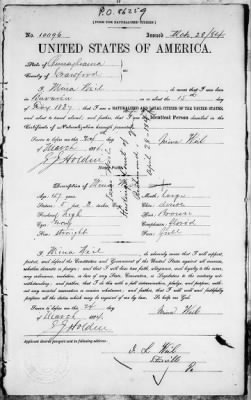 P.O. 86259
[FORM FOR NATURALIZED CITIZEN.]
No. 10096. Issued Mch. 28/84.
UNITED STATES OF AMERICA.
State of Pennsylvania
County of Crawford
I, Mina Weil, do swear that I was born
in Bavaria on or about the 15th day
of May 1827; that I am a NATURALIZED AND LOYAL CITIZEN OF THE UNITED STATES,
and about to travel abroad; and further, that I am the identical Person described in the
Certificate of Naturalization herewith presented.
Sworn to before me this 24
of March 1884
Mina Weil
E J Holden
Description of Mina
Age: 57 years Mouth: large
Stature: 5 feet 2 Chin:
Forehead: high Hair: Brown
Eyes: Complexion: Good
Nose: Straight Face: Full
I, Mina Weil, do solemnly swear that I will support,
protect, and defend the Constitution and Government of the United States against all enemies,
whether domestic or foreign; and that I will bear true faith, allegiance, and loyalty to the same,
any ordinance, resolution, or law of any State, Convention, or Legislature to the contrary not-
withstanding; and further, that I do this with a full determination, pledge, and purpose, with-
out any mental reservation or evasion whatsoever; and further, that I will well and faithfully
perform all the duties which may be required of me by law. So help me God.
Mina Weil
Sworn to before me this 24
of March 1884
E J Holden
Applicant desires passport sent to following address:
Weil
Pa